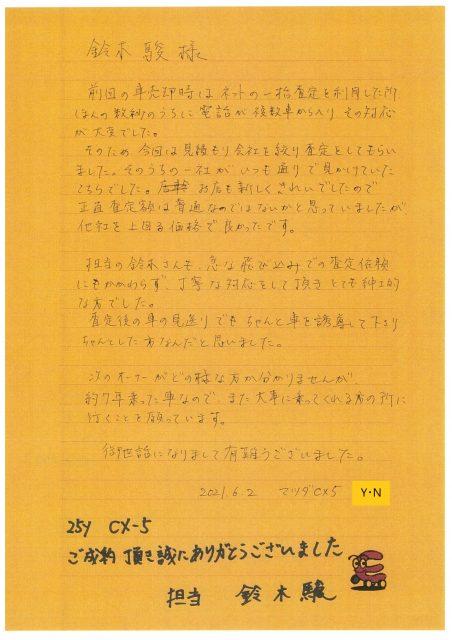 鈴木駿様
前回の車売却時はネットの一括査定を利用した所
ほんの数秒のうちに電話が複数車から入り その対応
が大変でした。
そのため今回は見積もり会社を絞り査定をしてもらい
ました。そのうちの一社が、いつも通りで見かけていた
こちらでした。お店も新しくきれいでしたので
正直査定額は普通なのではないかと思っていましたが
他社を上回る価格で良かったです。
担当の鈴木さんも、急な飛び込みでの査定依頼
にもかかわらず、丁寧な対応をして頂きとても紳士的
な方でした。
査定後の車の見送りでもちゃんと車を誘導して下さり
ちゃんとした方なんだと思いました。
次のオーナーがどの様な方か分かりませんが、
約7年乗った車なので、また大事に乗ってくれる方の所に
行くことを願っています。
御世話になりまして有難うございました。
2021.6.2 マツダCX5 Y・N
25Y CX-5
ご成約頂き誠にありがとうございました
担当 鈴木駿